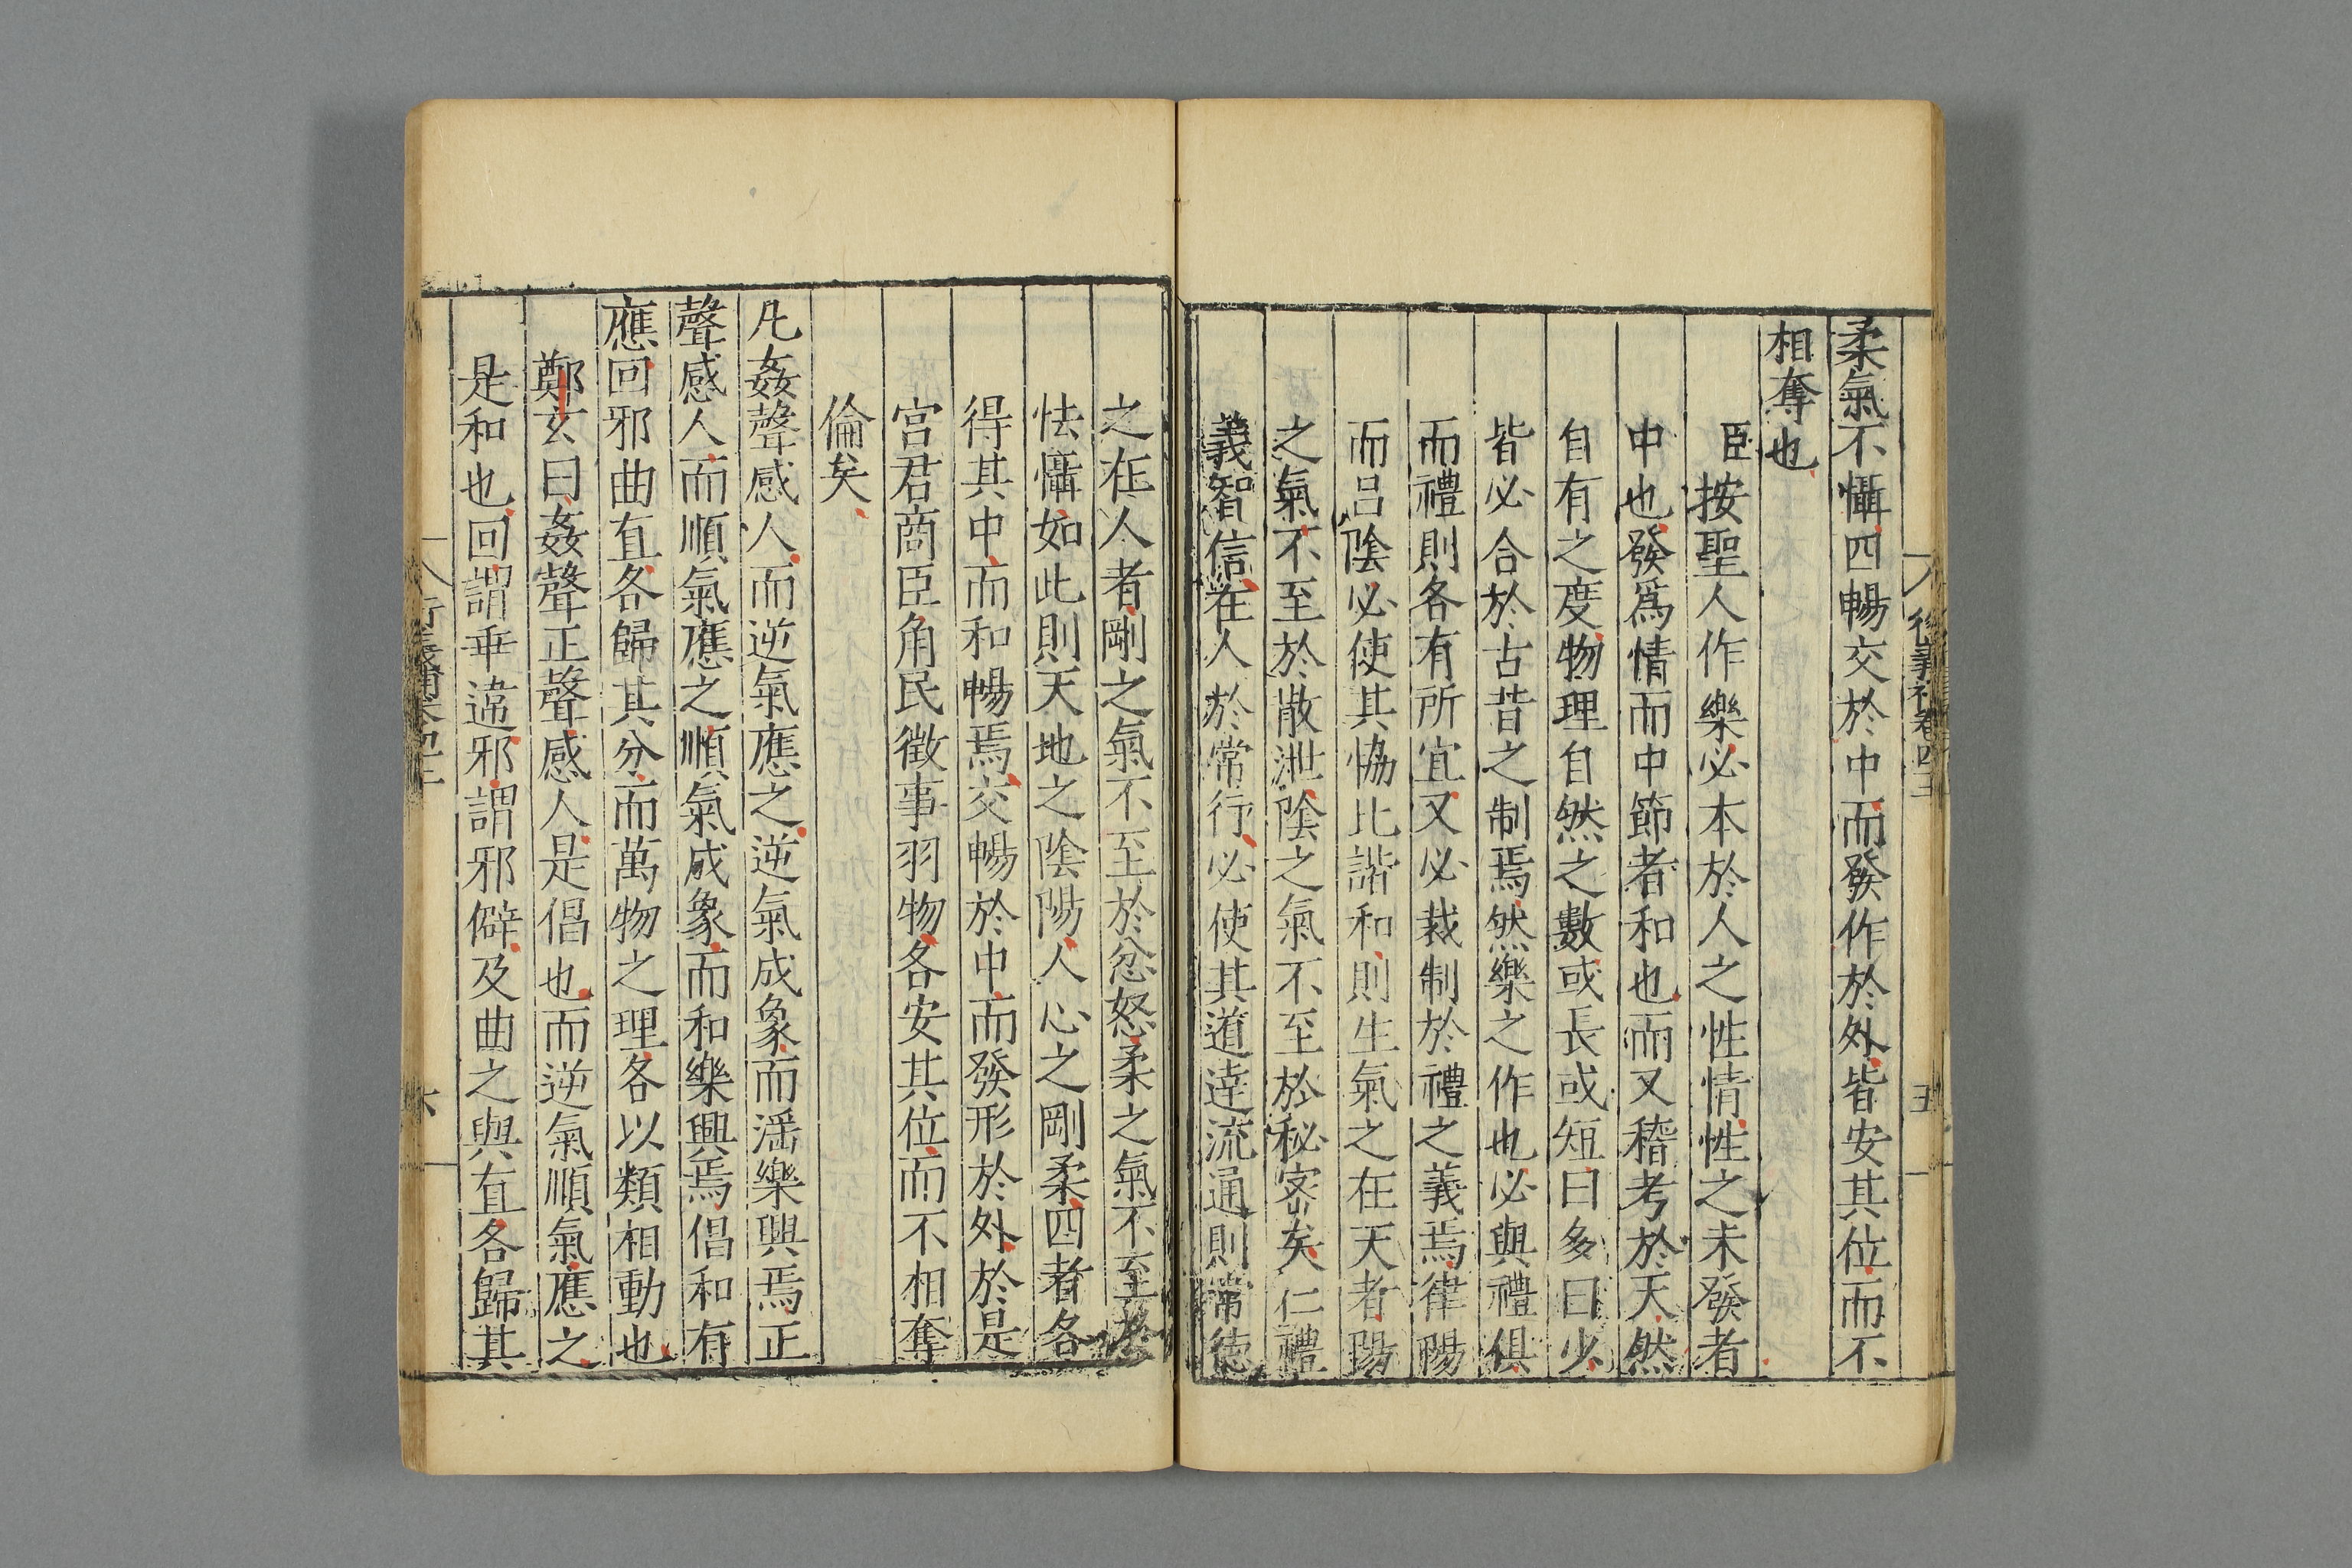 柔氣不懾四暢交於中而發作於外皆安其位而不
相奪也
臣按聖人作樂必本於人之性情性之未發者
中也發爲情而中節者和也而又稽考於天然
自有之度物理自然之數或長或短曰多曰少
皆必合於古昔之制焉然樂之作也必與禮俱
而禮則各有所宜又必裁制於禮之義焉律陽
而呂陰必使其恊比諧和則生氣之在天者陽
之氣不至於散泄陰之氣不至於秘密矣仁禮
義智信在人於常行必使其道達流通則常德
之在人者剛之氣不至於忿怒柔之氣不至於
怯懾如此則天地之陰陽人心之剛柔四者各
得其中而和暢焉交暢於中而發形於外於是
宮君商臣角民徵事羽物各安其位而不相奪
倫矣
凡姦聲感人而逆氣應之逆氣成象而滛樂興焉正
聲感人而順氣應之順氣成象而和樂興焉倡和有
應回邪曲直各歸其分而萬物之理各以類相動也
鄭玄曰姦聲正聲感人是倡也而逆氣順氣應之
是和也回謂乖違邪謂邪僻及曲之與直各歸其